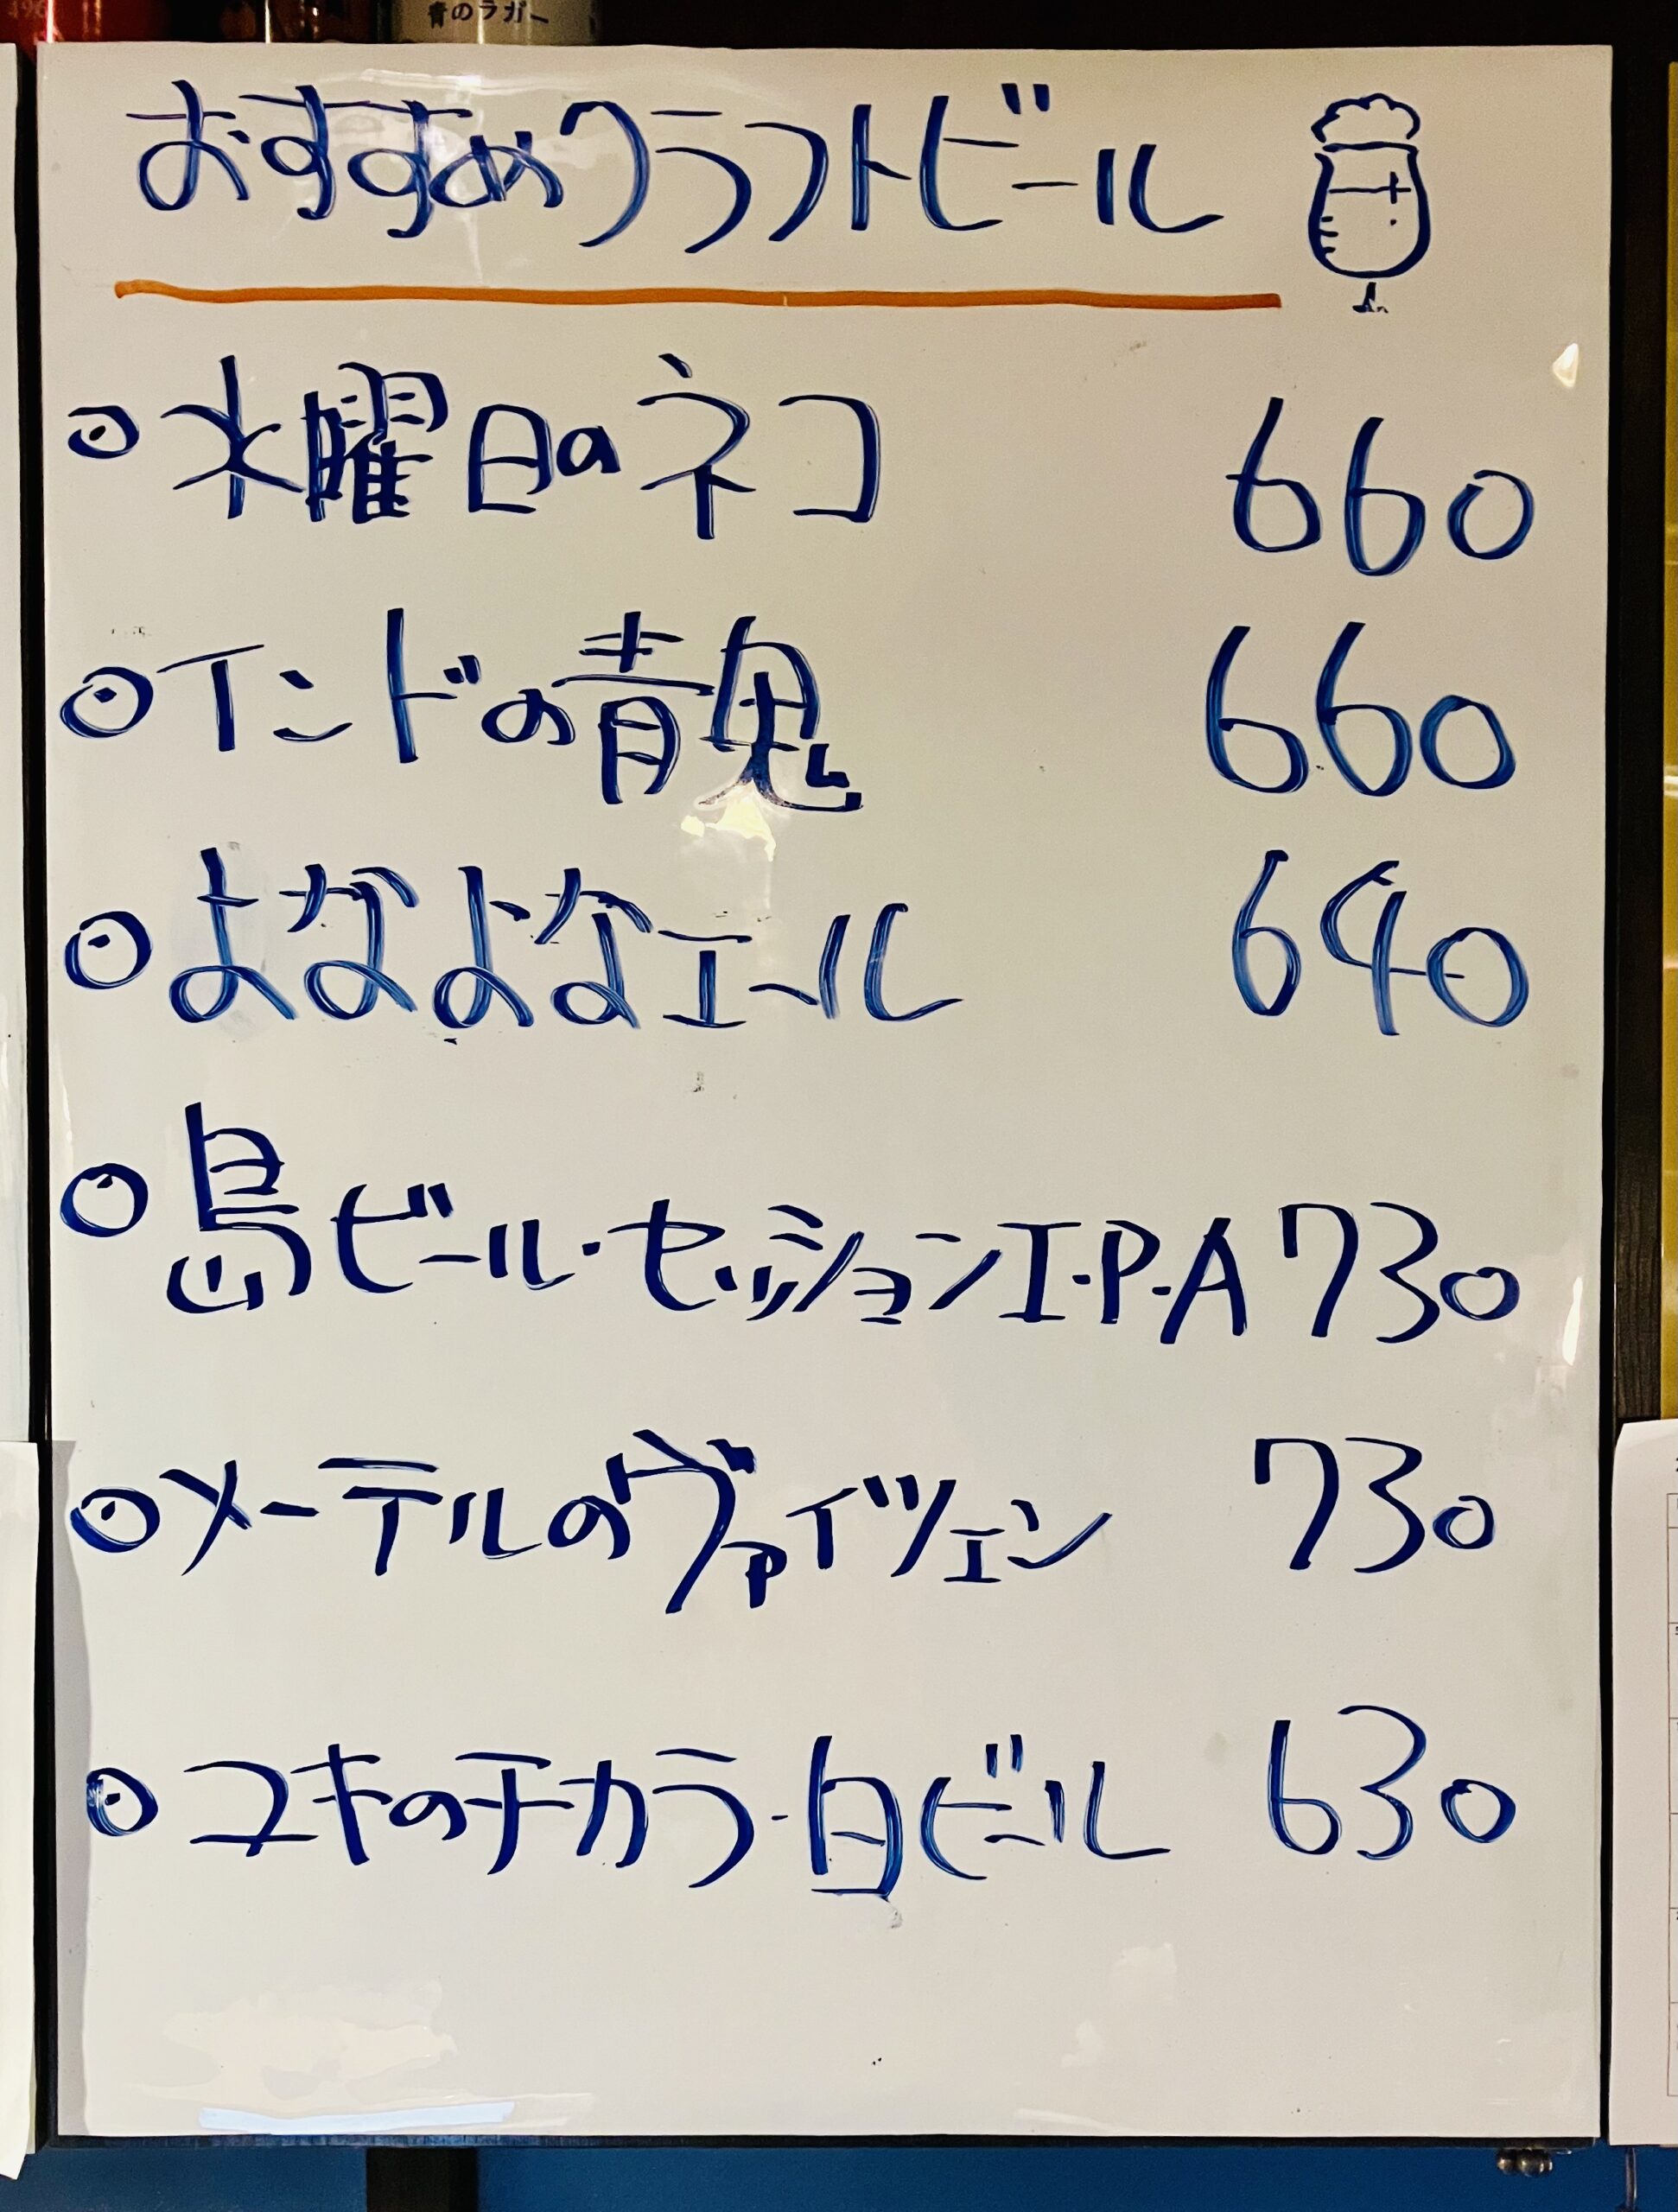 青のラガー
おすすめクラフトビール
⦿水曜日のネコ 660
⦿インドの青鬼 660
⦿よなよなエール 640
⦿島ビール・セッションI・P・A 730
⦿メーテルのヴァイツェン 730
⦿ユキのチカラ・白ビール 630